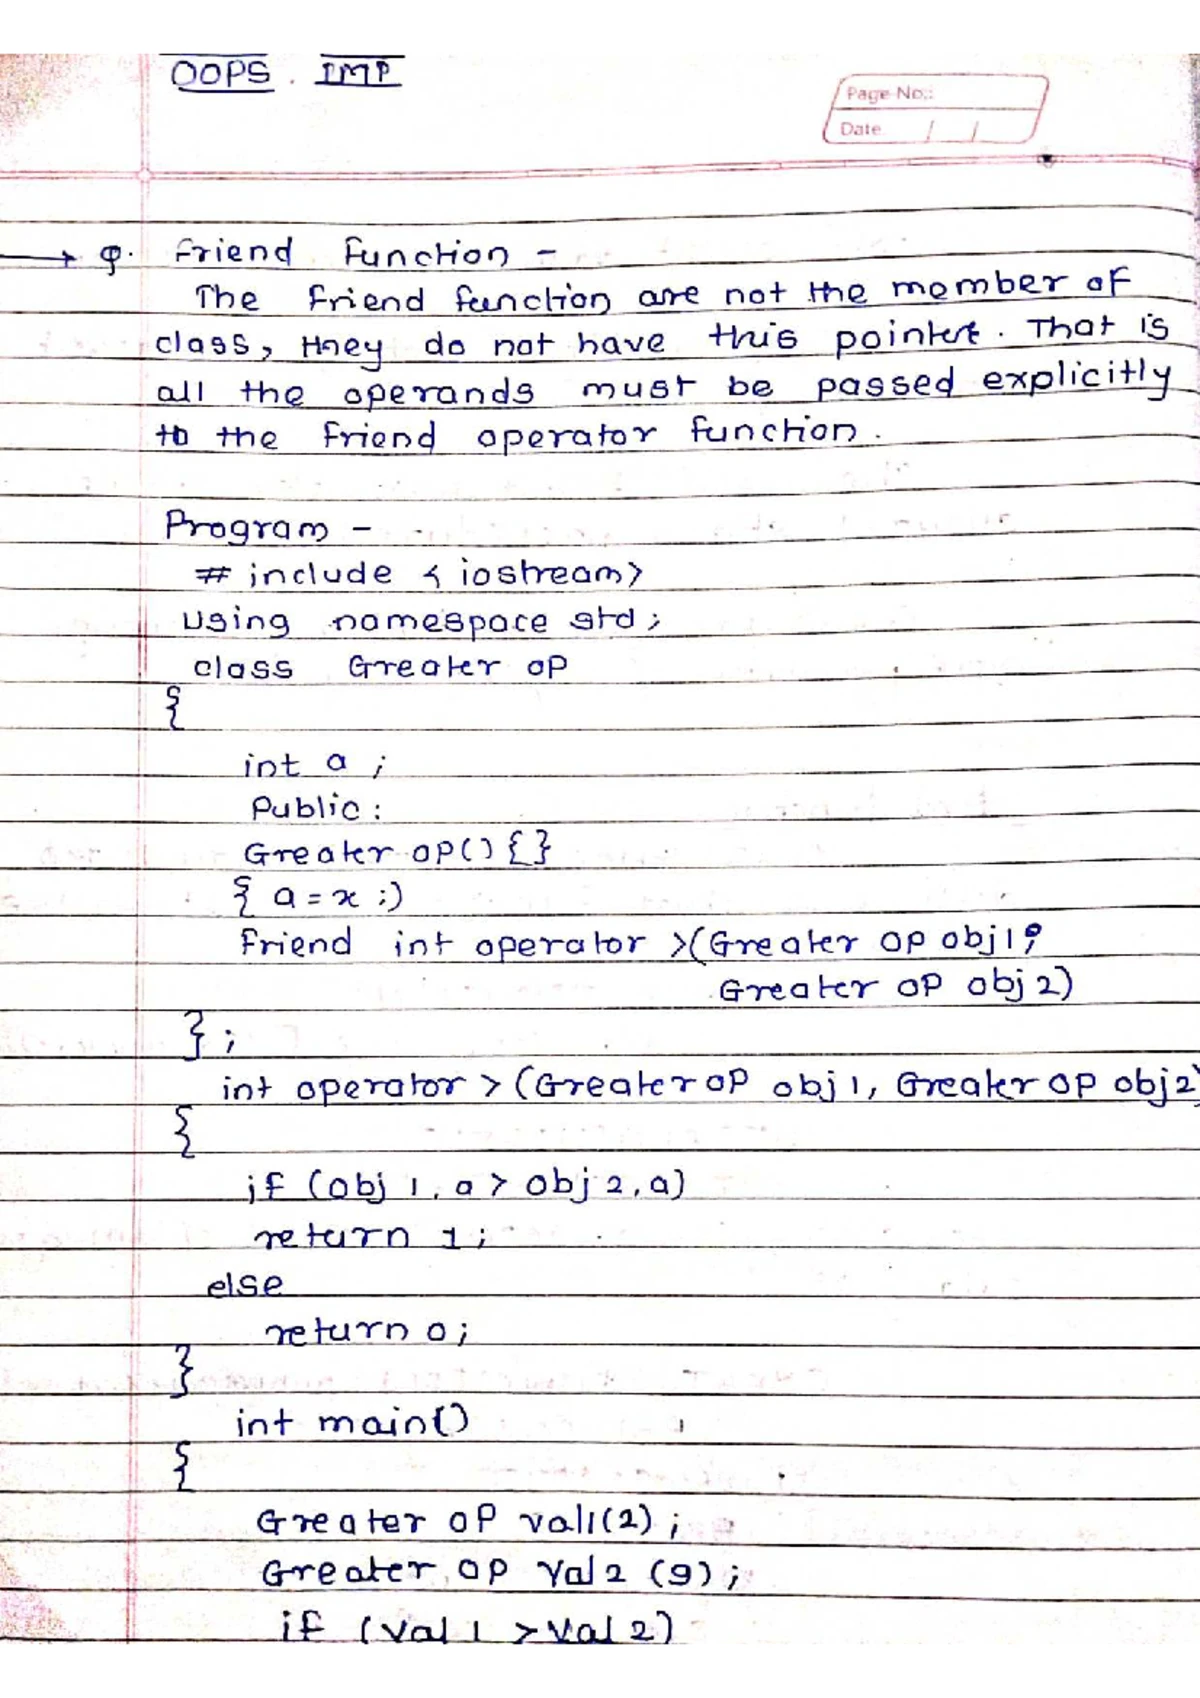 OOPS. IMP
Page No.:
Date / /
→ Q. Friend Function -
The friend function are not the member of
class, they do not have this pointer. That is
all the operands must be passed explicitly
to the friend operator function.
Program -
# include < iostream>
using namespace std;
class Greater op
{
int a ;
Public :
Greater op() {}
{ a = x ;)
Friend int operator >(Greater op obj1,
Greater OP obj 2)
} ;
int operator > (Greater OP obj 1, Greater OP obj 2)
{
if (obj 1, a > obj 2, a)
return 1 ;
else
return 0 ;
}
int main()
{
Greater OP val1(2) ;
Greater, op Val 2 (9) ;
if (val 1 > val 2)